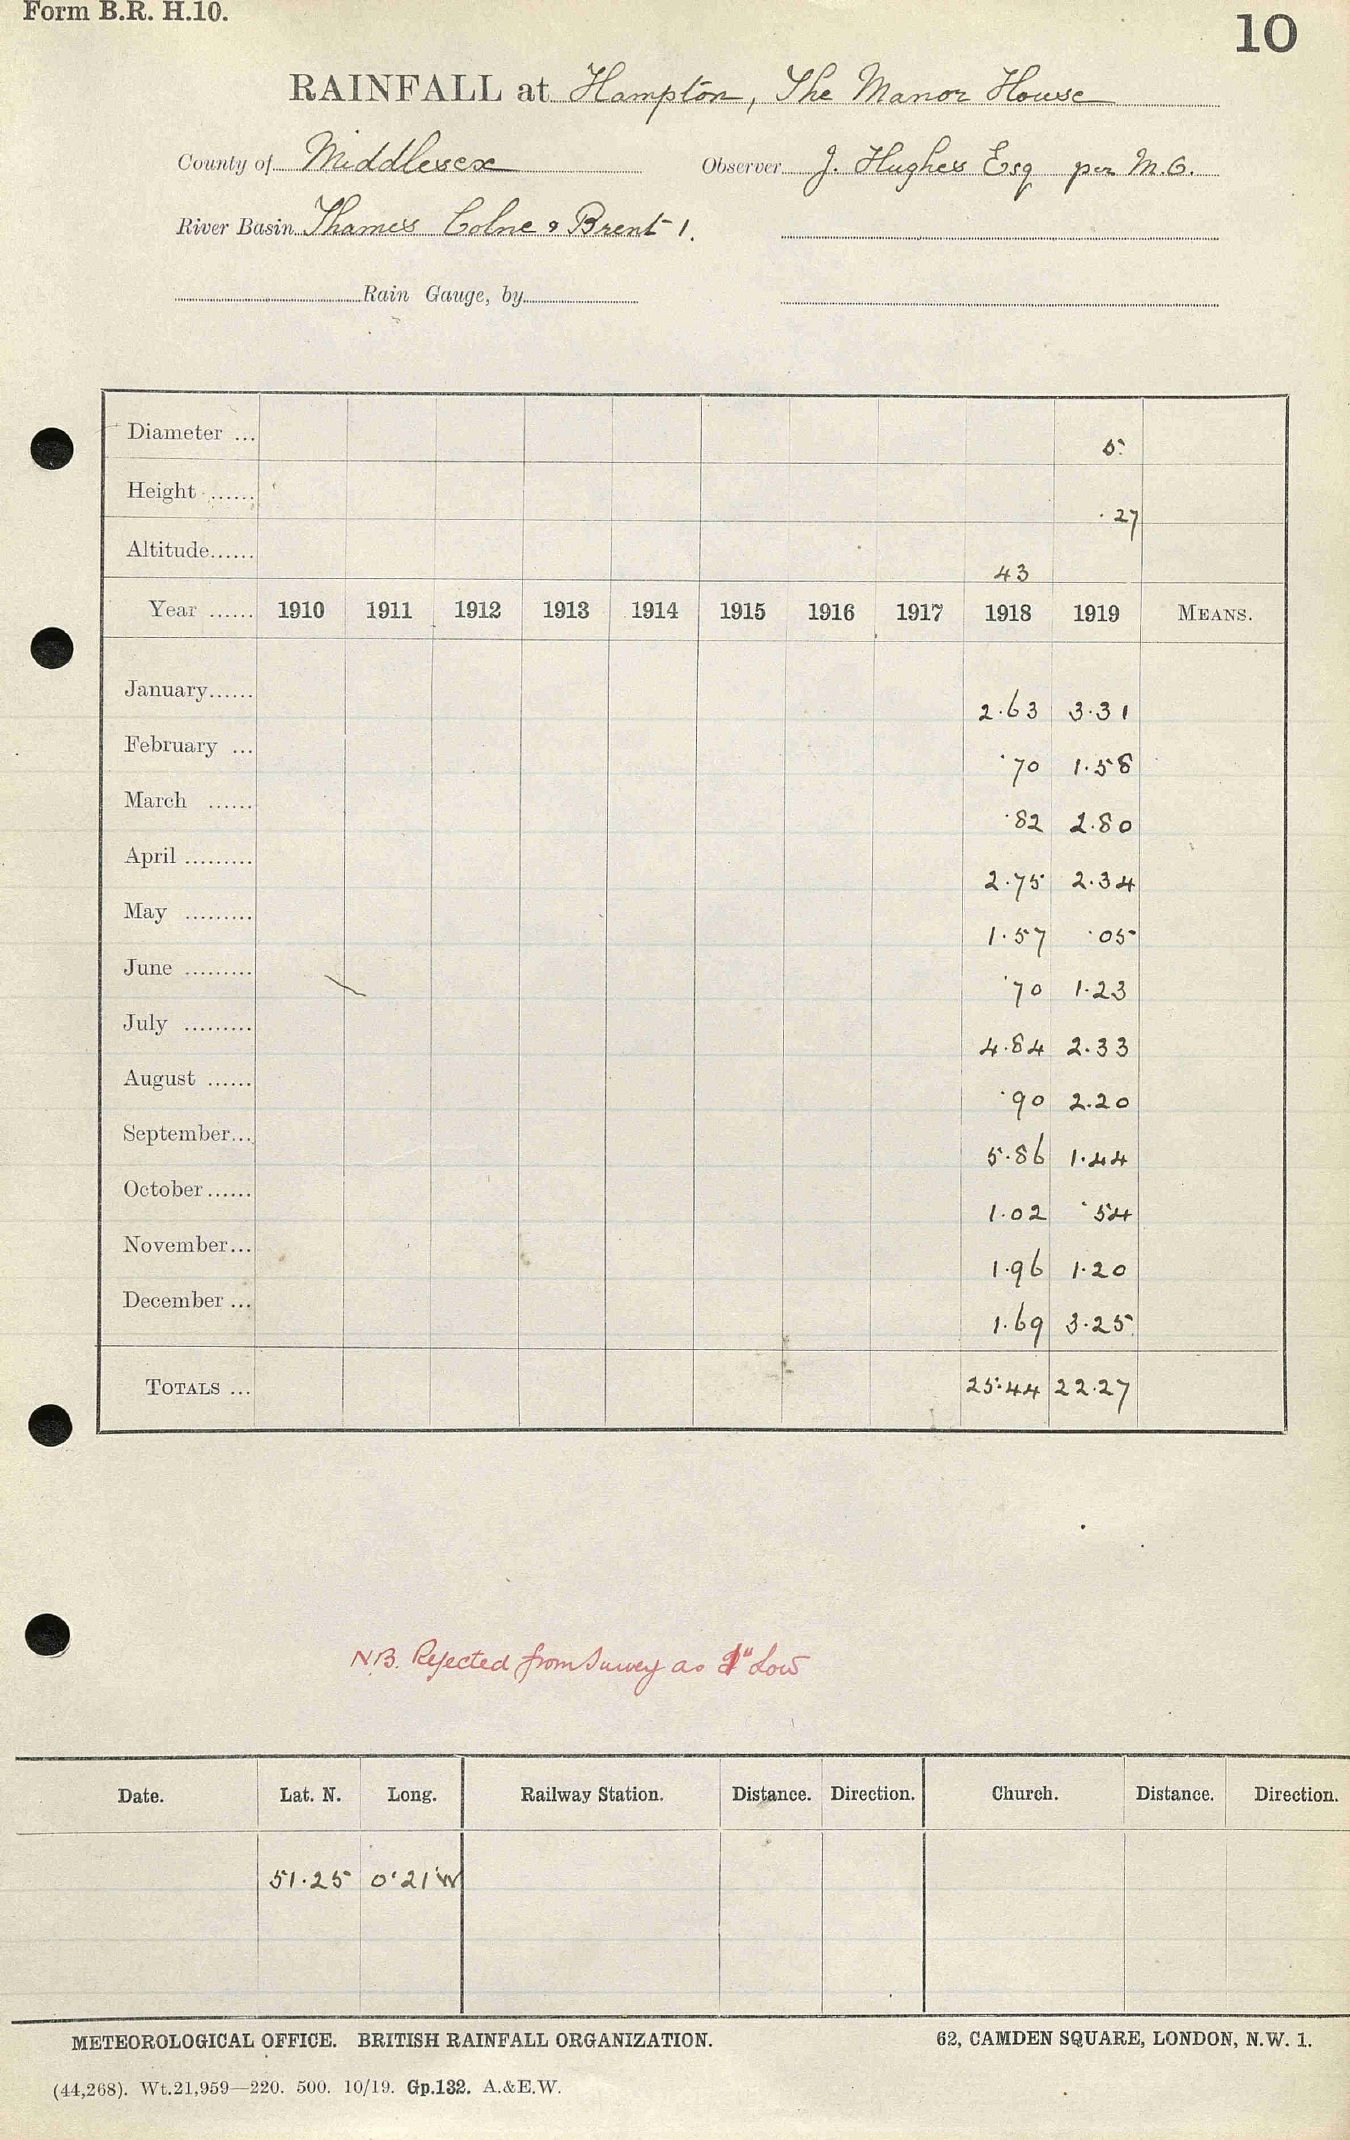 Form B.R. H.10.
10
RAINFALL at Hampton, The Manor House
County of Middlesex Observer J. Hughes Esq per M.O.
River Basin Thames Colne & Brent 1.
Rain Gauge, by
Diameter ... 5
Height ...... .27
Altitude...... 43
Year ...... 1910 1911 1912 1913 1914 1915 1916 1917 1918 1919 MEANS.
January...... 2.63 3.31
February ... .70 1.58
March ...... .82 2.80
April ......... 2.75 2.34
May ......... 1.57 .05
June ......... .70 1.23
July ......... 4.84 2.33
August ...... .90 2.20
September... 5.86 1.44
October...... 1.02 .54
November... 1.96 1.20
December ... 1.69 3.25
TOTALS ... 25.44 22.27
N.B. Rejected from Survey as 1" Low
Date. Lat. N. Long. Railway Station. Distance. Direction. Church. Distance. Direction.
51.25 0.21 W
METEOROLOGICAL OFFICE. BRITISH RAINFALL ORGANIZATION. 62, CAMDEN SQUARE, LONDON, N.W. 1.
(44,268). Wt.21,959—220. 500. 10/19. Gp.132. A.&E.W.